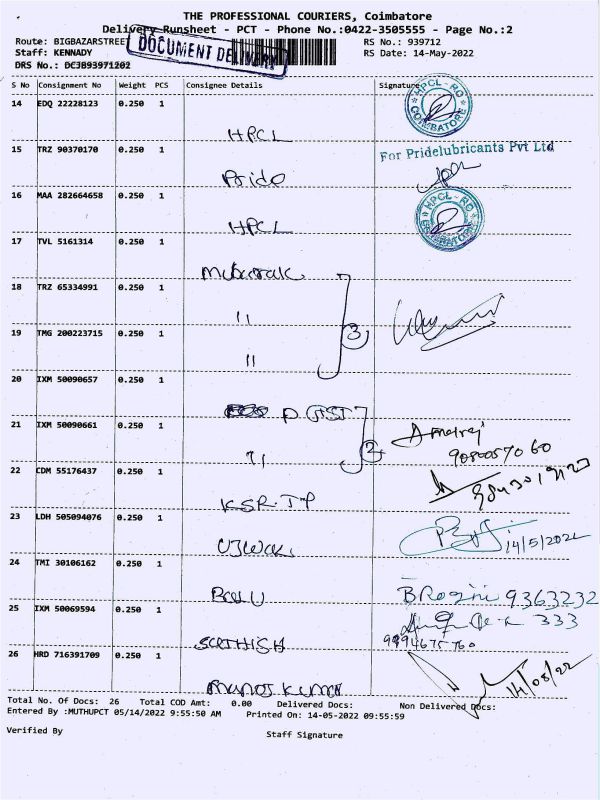 THE PROFESSIONAL COURIERS, Coimbatore
Delivery Runsheet - PCT - Phone No.:0422-3505555 - Page No.:2
Route: BIGBAZARSTREET DOCUMENT DELIVERY RS No.: 939712
Staff: KENNADY RS Date: 14-May-2022
DRS No.: DCJB93971202
S No Consignment No Weight PCS Consignee Details Signature
14 EDQ 22228123 0.250 1 HPCL HPCL-RO COIMBATORE
15 TRZ 90370170 0.250 1 Pride For Pridelubricants Pvt Ltd
16 MAA 282664658 0.250 1 HPCL HPCL-RO COIMBATORE
17 TVL 5161314 0.250 1 Mubarak
18 TRZ 65334991 0.250 1 "
19 TMG 200223715 0.250 1 " 3
20 IXM 50090657 0.250 1 D GST
21 IXM 50090661 0.250 1 " 2
22 CDM 55176437 0.250 1 KSR
23 LDH 505094076 0.250 1 14/5/2022
24 TMI 30106162 0.250 1 BALU B Rogini 9363232
333
25 IXM 50069594 0.250 1 SATHISH 9994675760
26 HRD 716391709 0.250 1 Manoj Kumar
Total No. Of Docs: 26 Total COD Amt: 0.00 Delivered Docs: Non Delivered Docs:
Entered By :MUTHUPCT 05/14/2022 9:55:50 AM Printed On: 14-05-2022 09:55:59
Verified By Staff Signature